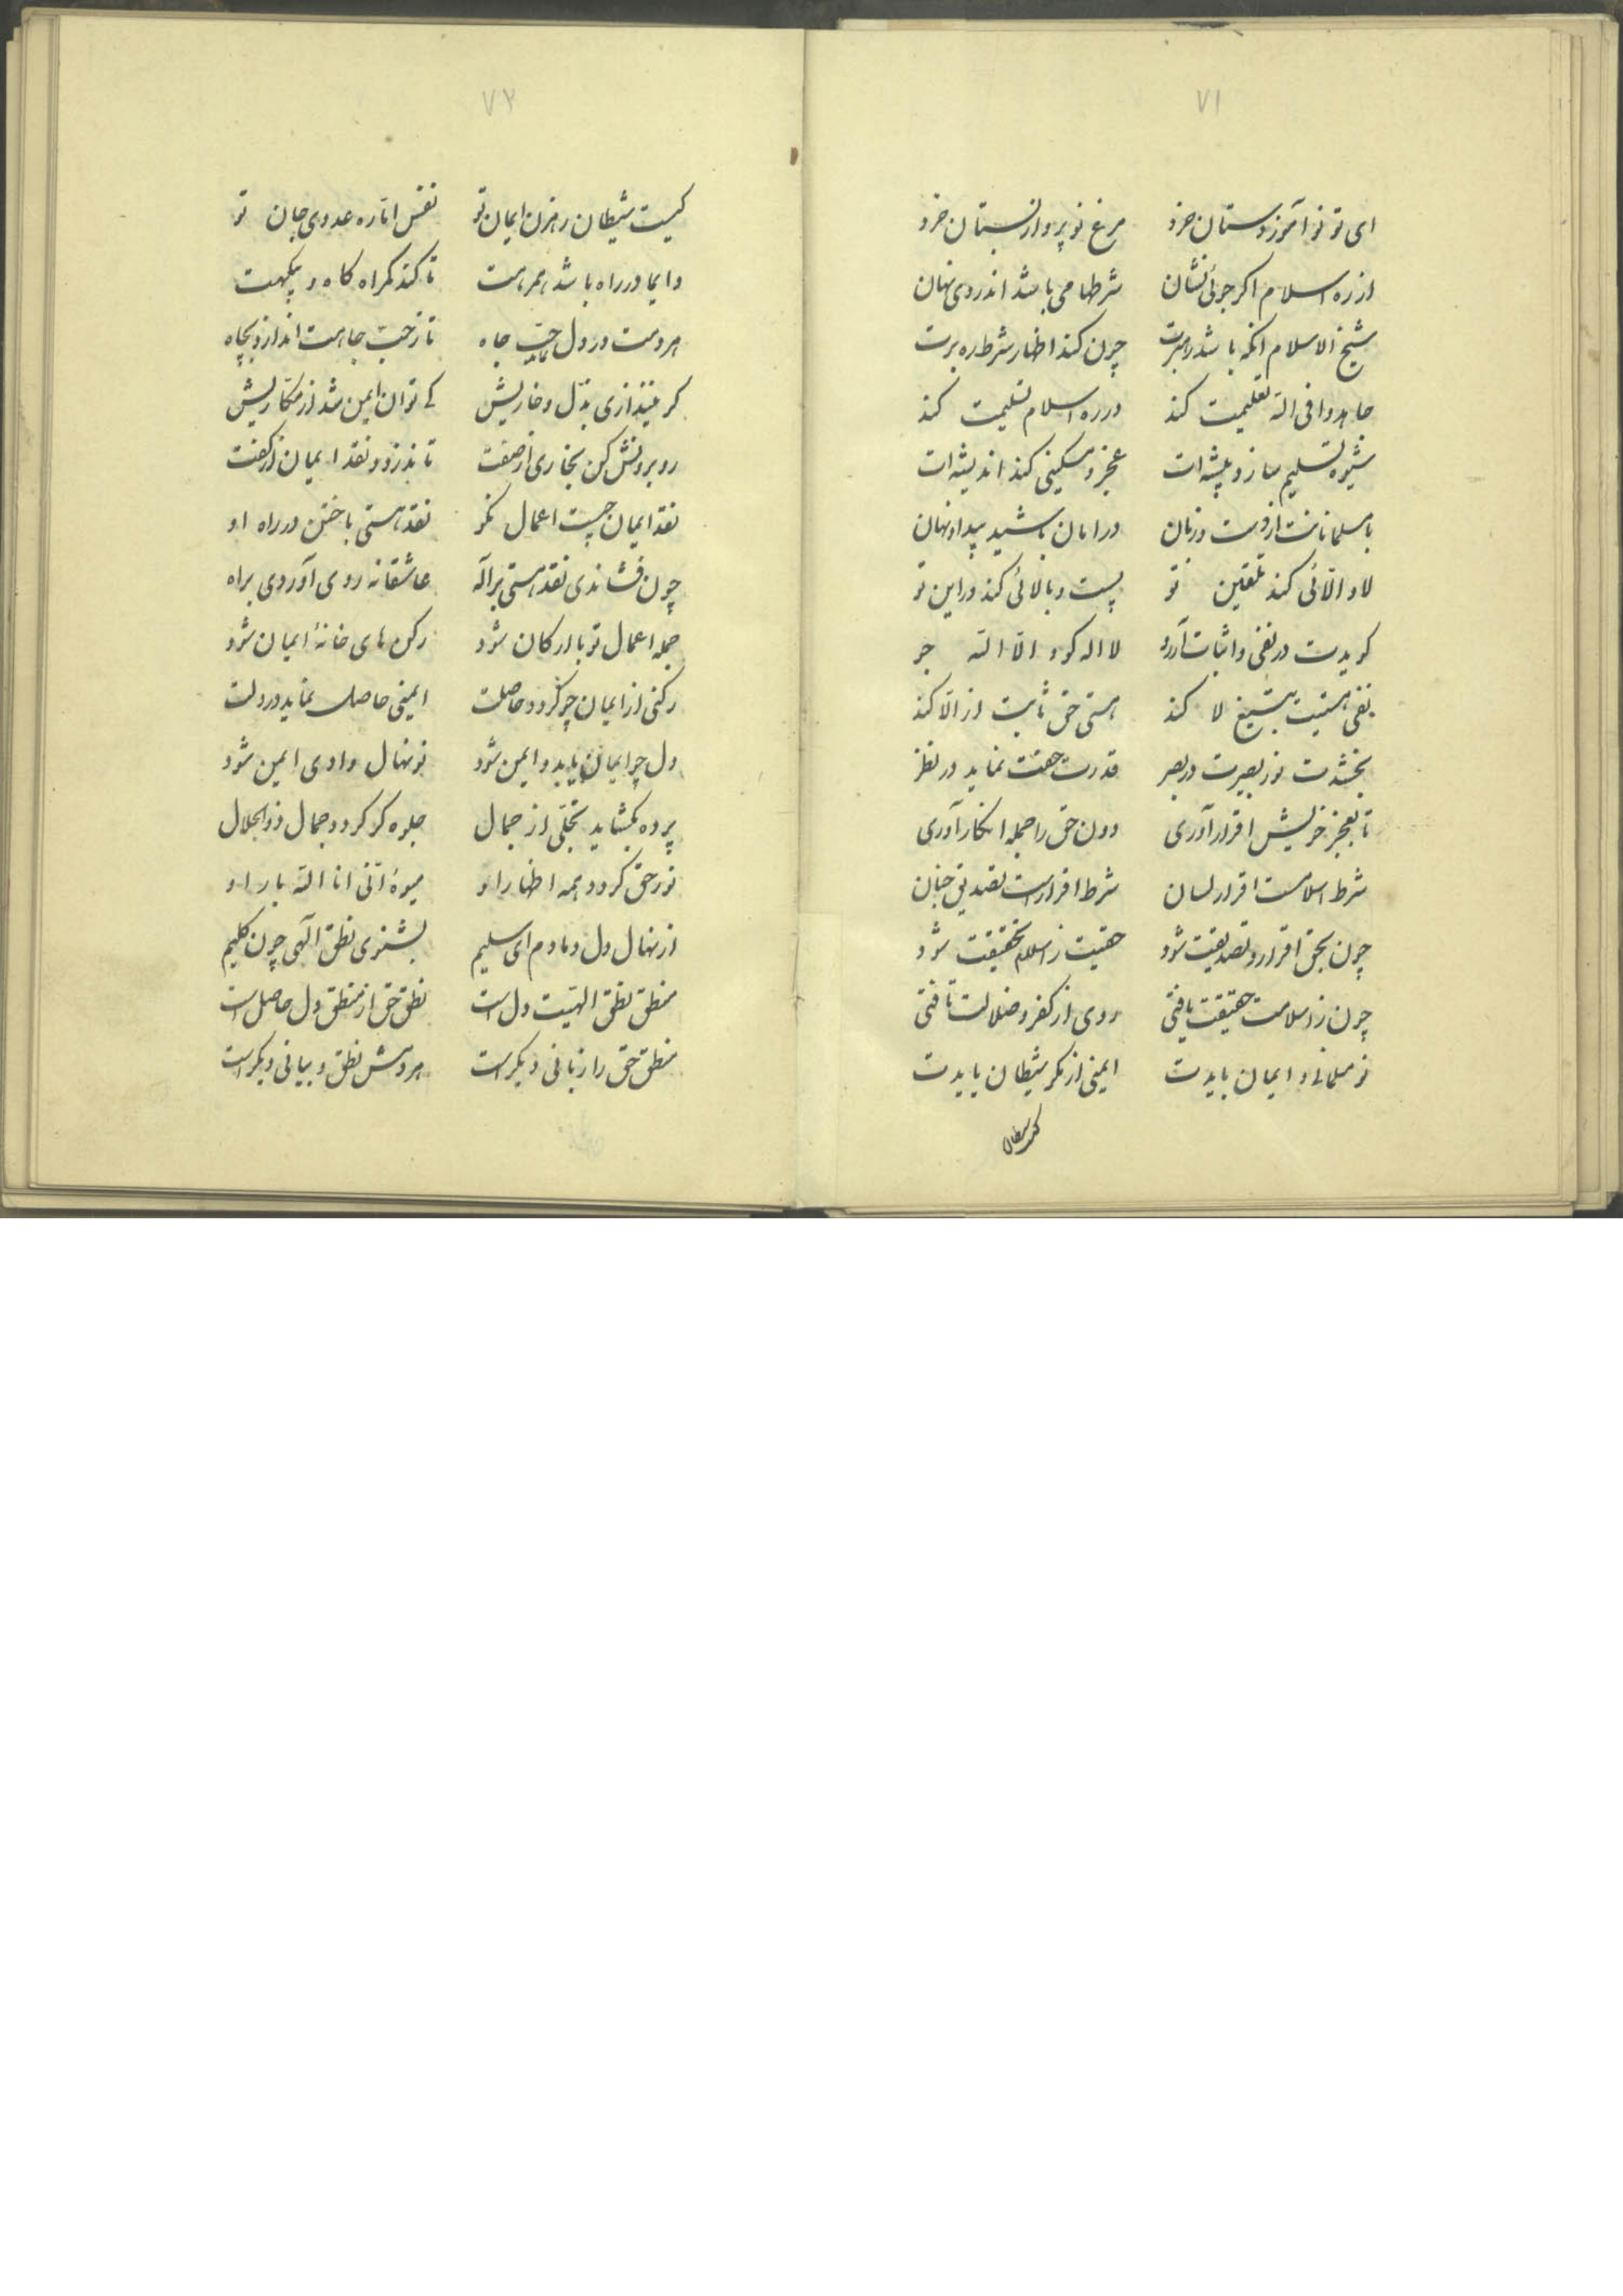 ۷۱
ای تو نوآموز دستان خرد مرغ نوپرواز بستان خرد
از ره اسلام اکر جوئی نشان شرطها می باشد اندر وی نهان
شیخ الاسلام انکه باشد رهبرت چون کند اظهار شرط ره برت
جاهدوا فی الله تعلیمت کند در ره اسلام تسلیمت کند
شیوه تسلیم سازد پیشه ات عجز و مسکینی کند اندیشه ات
با مسلمانانت از دست و زبان در امان باشید پیدا و نهان
لا و الّائی کند تلقین تو پست و بالائی کند در این تو
کویدت در نفی و اثبات آر رو لا اله کو و الّا الله جو
نفی هستیت بتیغ لا کند هستی حق ثابت از الّا کند
بخشدت نور بصیرت در بصر قدرت حقت نماید در نظر
تا بعجز خویش اقرار آوری دون حق را جمله انکار آوری
شرط اسلامست اقرار لسان شرط اقرارست تصدیق جنان
چون بحق اقرار و تصدیقت شود حقیت ز اسلام تحقیقت شود
چون ز اسلامت حقیقت یافتی روی از کفر و ضلالت تافتی
نو مسلمانی و ایمان بایدت ایمنی از مکر شیطان بایدت
کیست شیطان
۷۲
کیست شیطان رهزن ایمان تو نفس امّاره عدوی جان تو
دایما در راه باشد همرهت تا کند کمراه کاه و بیکهت
هر دمت در دل نماید حبّ جاه تا ز حبّ جاهت اندازد بچاه
کر نیندازی بذل و خاریش کی توان ایمن شد از مکّاریش
رو برونش کن بخاری از صفت تا ندزدد نقد ایمان از کفت
نقد ایمان چیست اعمال نکو نقد هستی باختن در راه او
چون فشاندی نقد هستی بر آله عاشقانه روی آوردی براه
جمله اعمال تو با ارکان شود رکن های خانهٔ ایمان شود
رکنی از ایمان چو کردد حاصلت ایمنی حاصل نماید در دلت
دل چو ایمان یابد و ایمن شود نونهال وادی ایمن شود
پرده بکشاید تجلّی از جمال جلوه کر کردد جمال ذوالجلال
نور حق کردد همه اظهار او میوهٔ انّی انا الله بار او
از نهال دل دمادم ای سلیم بشنوی نطق آلهی چون کلیم
منطق نطق الهیت دل است نطق حق از منطق دل حاصل است
منطق حق را زبانی دیکر است هر دمش نطق و بیانی دیکر است